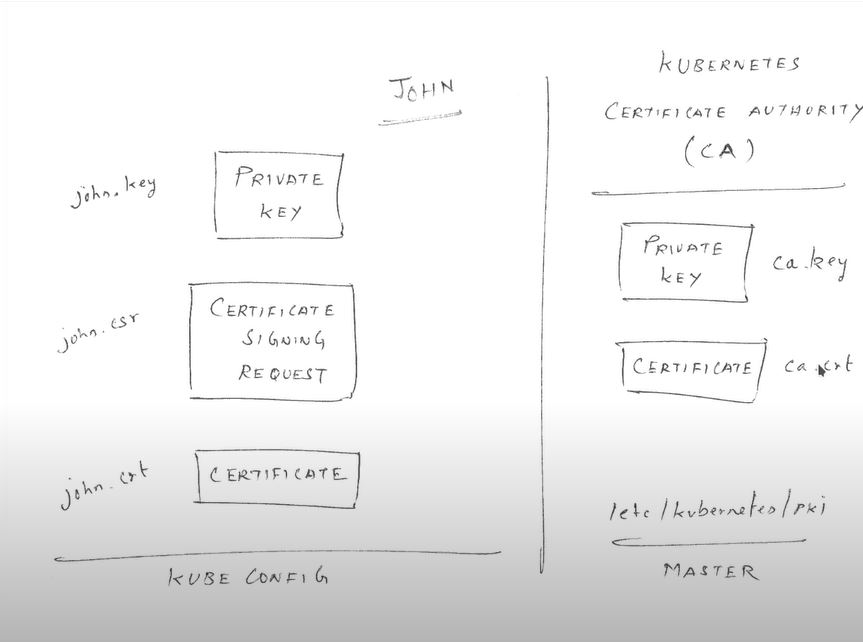 JOHN
john.key
PRIVATE
KEY
john.csr
CERTIFICATE
SIGNING
REQUEST
john.crt
CERTIFICATE
KUBE CONFIG
KUBERNETES
CERTIFICATE AUTHORITY
(CA)
PRIVATE
KEY
ca.key
CERTIFICATE
ca.crt
/etc/kubernetes/pki
MASTER